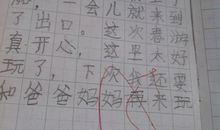 一会儿就来到
了出口。这次春游
真开心，这里太好
玩了，下次我还要
和爸爸妈妈再来玩